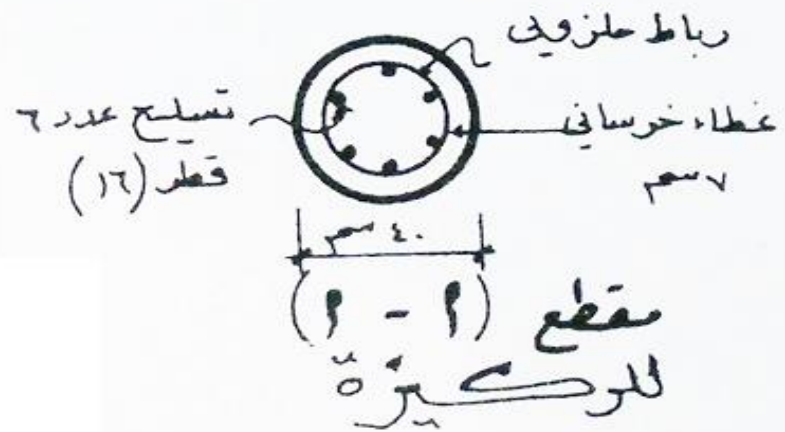 رباط حلزوني
تسليح عدد ٦
قطر (١٦)
غطاء خرساني
٧ سم
٤٠ سم
مقطع (أ - أ)
للركيزة